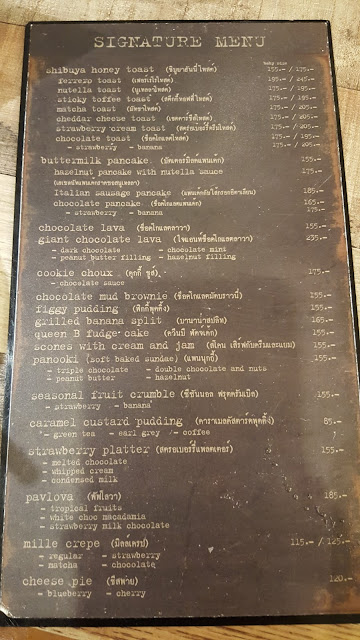 SIGNATURE MENU
baby size
shibuya honey toast (ชิบูยาฮันนี่โทสต์) 155.- / 175.-
ferrero toast (เฟอเรโร่โทสต์) 195.- / 245.-
nutella toast (นูเทลล่าโทสต์) 175.- / 195.-
sticky toffee toast (สติ๊กกี้ทอฟฟี่โทสต์) 175.- / 205.-
matcha toast (มัทฉะโทสต์) 175.- / 205.-
cheddar cheese toast (เชดดาร์ชีสโทสต์) 175.- / 205.-
strawberry cream toast (สตรอเบอร์รี่ครีมโทสต์) 175.- / 205.-
chocolate toast (ช็อคโกแลตโทสต์) 175.- / 195.-
- strawberry - banana 175.- / 205.-
buttermilk pancake (บัตเตอร์มิลค์แพนเค้ก) 155.-
hazelnut pancake with nutella sauce 175.-
Italian sausage pancake 185.-
chocolate pancake (ช็อคโกแลตแพนเค้ก) 165.-
- strawberry - banana 175.-
chocolate lava (ช็อคโกแลตลาวา) 155.-
giant chocolate lava (ไจแอนท์ช็อคโกแลตลาวา) 235.-
- dark chocolate - chocolate mint
- peanut butter filling - hazelnut filling
cookie choux (คุกกี้ ชูส์) 175.-
- chocolate sauce
chocolate mud brownie (ช็อคโกแลตมัดบราวนี่) 155.-
figgy pudding (ฟิกกี้พุดดิ้ง) 155.-
grilled banana split (บานาน่าสปลิท) 165.-
queen B fudge cake (ควีนบี ฟัดจ์เค้ก) 155.-
scones with cream and jam (สโคน เสิร์ฟกับครีมและแยม) 155.-
panooki (soft baked sundae) (แพนนุกกี้) 155.-
- triple chocolate - double chocolate and nuts
- peanut butter - hazelnut
seasonal fruit crumble (ซีซันนอล ฟรุตครัมเบิล) 155.-
- strawberry - banana
caramel custard pudding (คาราเมลคัสตาร์ดพุดดิ้ง) 85.-
- green tea - earl grey - coffee
strawberry platter (สตรอเบอร์รี่แพลตเตอร์) 155.-
- melted chocolate
- whipped cream
- condensed milk
pavlova (พัฟโลวา) 185.-
- tropical fruits
- white choc macadamia
- strawberry milk chocolate
mille crepe (มิลเครป) 115.- / 125.-
- regular - strawberry
- matcha - chocolate
cheese pie (ชีสพาย) 120.-
- blueberry - cherry